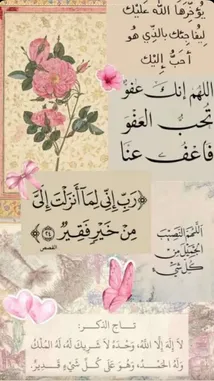 يُؤخِّرُها اللَّه عَلَيْكَ
ليُفاجِئكَ بالَّذِي هُو
أحَبُّ إِلَيْك
اللهُم إنكَ عَفوٌ
تُحبُ العفوَ
فاعْفُ عنَا
﴿رَبِّ إِنِّي لِمَا أَنزَلْتَ إِلَيَّ
مِنْ خَيْرٍ فَقِيرٌ ٢٤﴾
القصص
اللَّهُمَّ النَّصِيبَ
الجَمِيلَ مِنْ
كُلِّ شَيْءٍ
تاج الذكر:
لَا إِلَهَ إِلَّا اللهُ، وَحْدَهُ لَا شَرِيكَ لَهُ، لَهُ المُلْكُ
وَلَهُ الحَمْدُ، وَهُوَ عَلَى كُلِّ شَيْءٍ قَدِيرٌ.